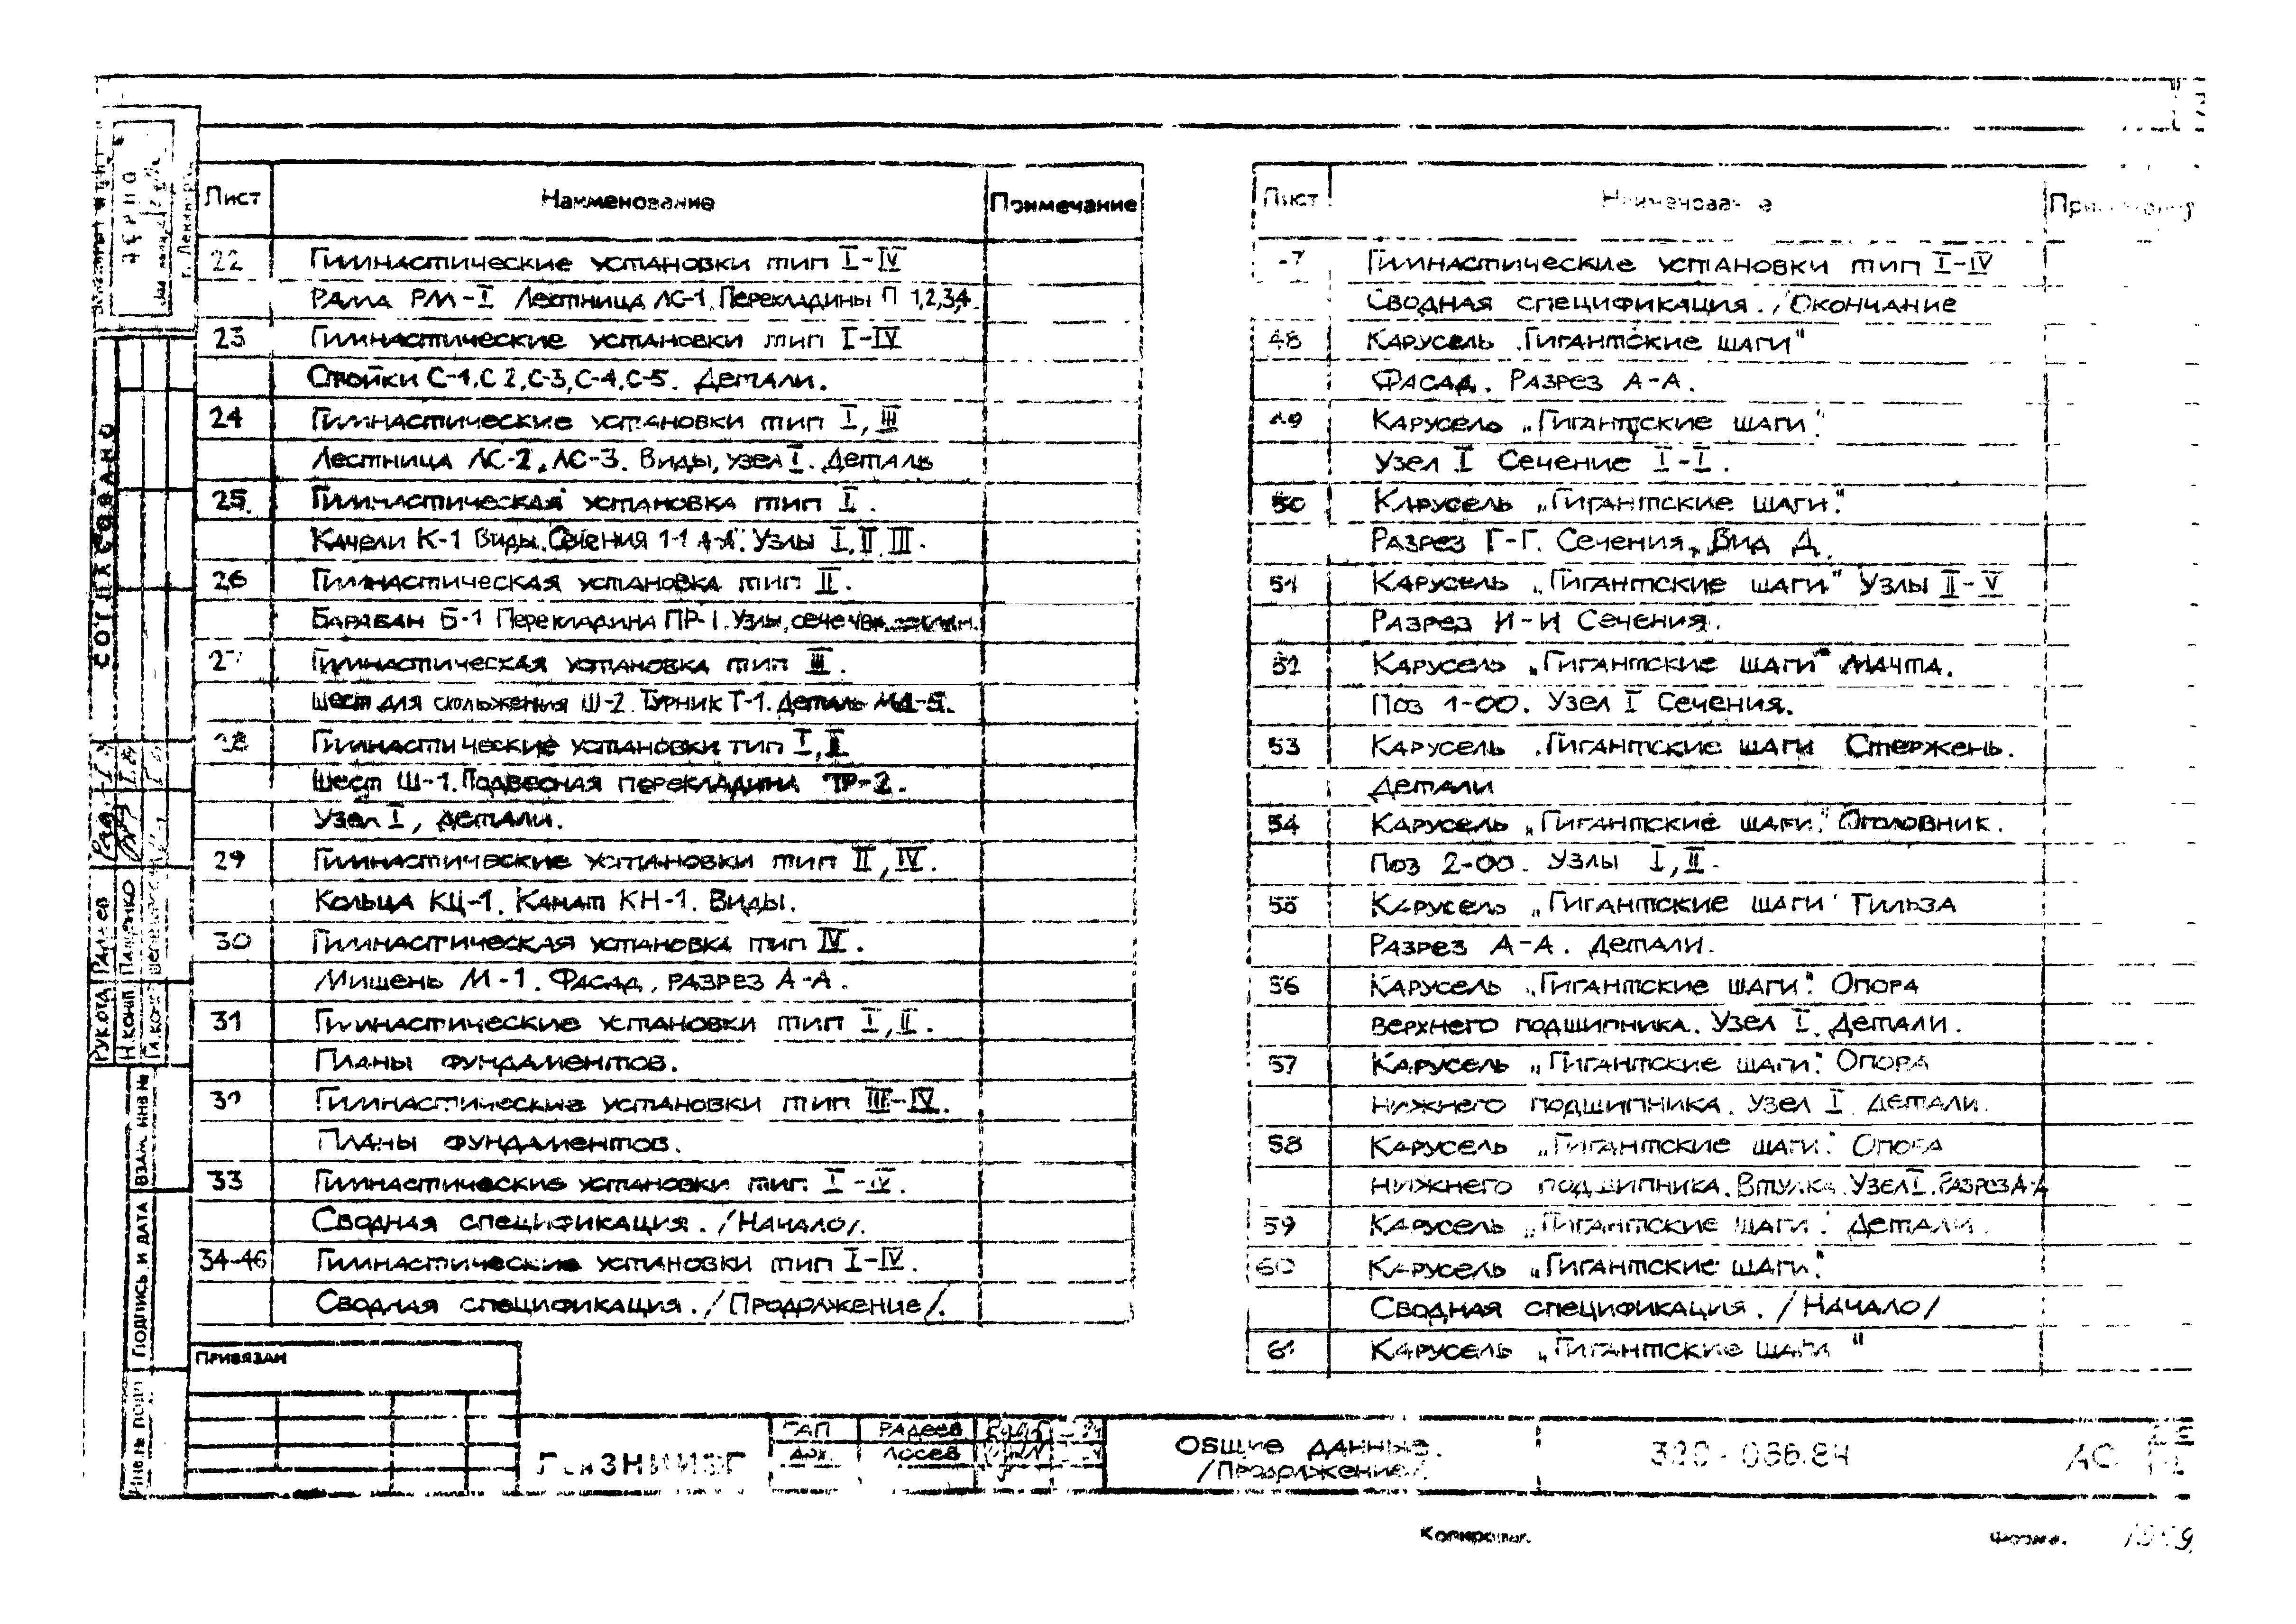 Лист Наименование Примечание
22 Гимнастические установки тип I-IV
Рама РМ-I Лестница ЛС-1. Перекладины П 1,2,3,4.
23 Гимнастические установки тип I-IV
Стойки С-1, С 2, С-3, С-4, С-5. Детали.
24 Гимнастические установки тип I, III
Лестница ЛС-2, ЛС-3. Виды, узел I. Деталь
25. Гимнастическая установка тип I.
Качели К-1 Виды. Сечения 1-1 А-А. Узлы I, II, III.
26 Гимнастическая установка тип II.
Барабан Б-1 Перекладина ПР-1. Узлы,
Гимнастическая установка тип III.
Шест для скольжения Ш-2. Турник Т-1. Деталь МД-5.
28 Гимнастические установки тип I, II
Шест Ш-1. Подвесная перекладина ТР-2.
Узел I, детали.
29 Гимнастические установки тип II, IV.
Кольца КЦ-1. Канат КН-1. Виды.
30 Гимнастическая установка тип IV.
Мишень М-1. Фасад, разрез А-А.
31 Гимнастические установки тип I, II.
Планы фундаментов.
Гимнастические установки тип III-IV.
Планы фундаментов.
33 Гимнастические установки тип I-IV.
Сводная спецификация. /Начало/.
34-46 Гимнастические установки тип I-IV.
Сводная спецификация. /Продолжение/.
Лист Наименование
Гимнастические установки тип I-IV
Сводная спецификация. /Окончание
48 Карусель „Гигантские шаги"
Фасад. Разрез А-А.
49 Карусель „Гигантские шаги".
Узел I Сечение I-I.
50 Карусель „Гигантские шаги".
Разрез Г-Г. Сечения, Вид Д.
51 Карусель „Гигантские шаги" Узлы II-V
Разрез И-И Сечения.
52 Карусель „Гигантские шаги" Мачта.
Поз 1-00. Узел I Сечения.
53 Карусель „Гигантские шаги Стержень.
Детали
54 Карусель „Гигантские шаги". Оголовник.
Поз 2-00. Узлы I, II.
55 Карусель „Гигантские шаги" Гильза
Разрез А-А. Детали.
56 Карусель „Гигантские шаги". Опора
верхнего подшипника. Узел I. Детали.
57 Карусель „Гигантские шаги". Опора
нижнего подшипника. Узел I. Детали.
58 Карусель „Гигантские шаги". Опора
нижнего подшипника. Втулка. Узел I. Разрез А-А
59 Карусель „Гигантские шаги". Детали.
60 Карусель „Гигантские шаги".
Сводная спецификация. /Начало/
61 Карусель „Гигантские шаги"
СОГЛАСОВАНО
РУК.ОТД
Н.КОНП ПАЩЕНКО
ВЗАМ. ИНВ №
ПОДПИСЬ И ДАТА
ИНВ № ПОДЛ
ПРИВЯЗАН
ГАП РАДЕЕВ
АРХ. ЛОСЕВ
ОБЩИЕ ДАННЫЕ.
/Продолжение/.
320-036.84
АС
Копировал.